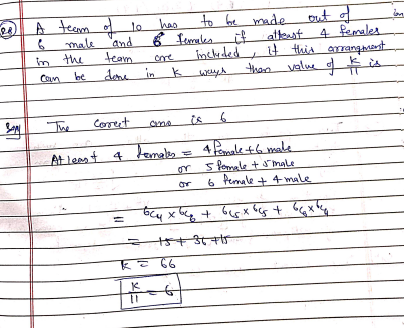 28 A team of 10 has to be made out of
6 male and 6 females if atleast 4 females
in the team are included, if this arrangment
can be done in K ways then value of K/11 is
Soln The correct ans is 6
At least 4 females = 4 female + 6 male
or 5 female + 5 male
or 6 female + 4 male
= 6C4 × 6C6 + 6C5 × 6C5 + 6C6 × 6C4
= 15 + 36 + 15
K = 66
K/11 = 6